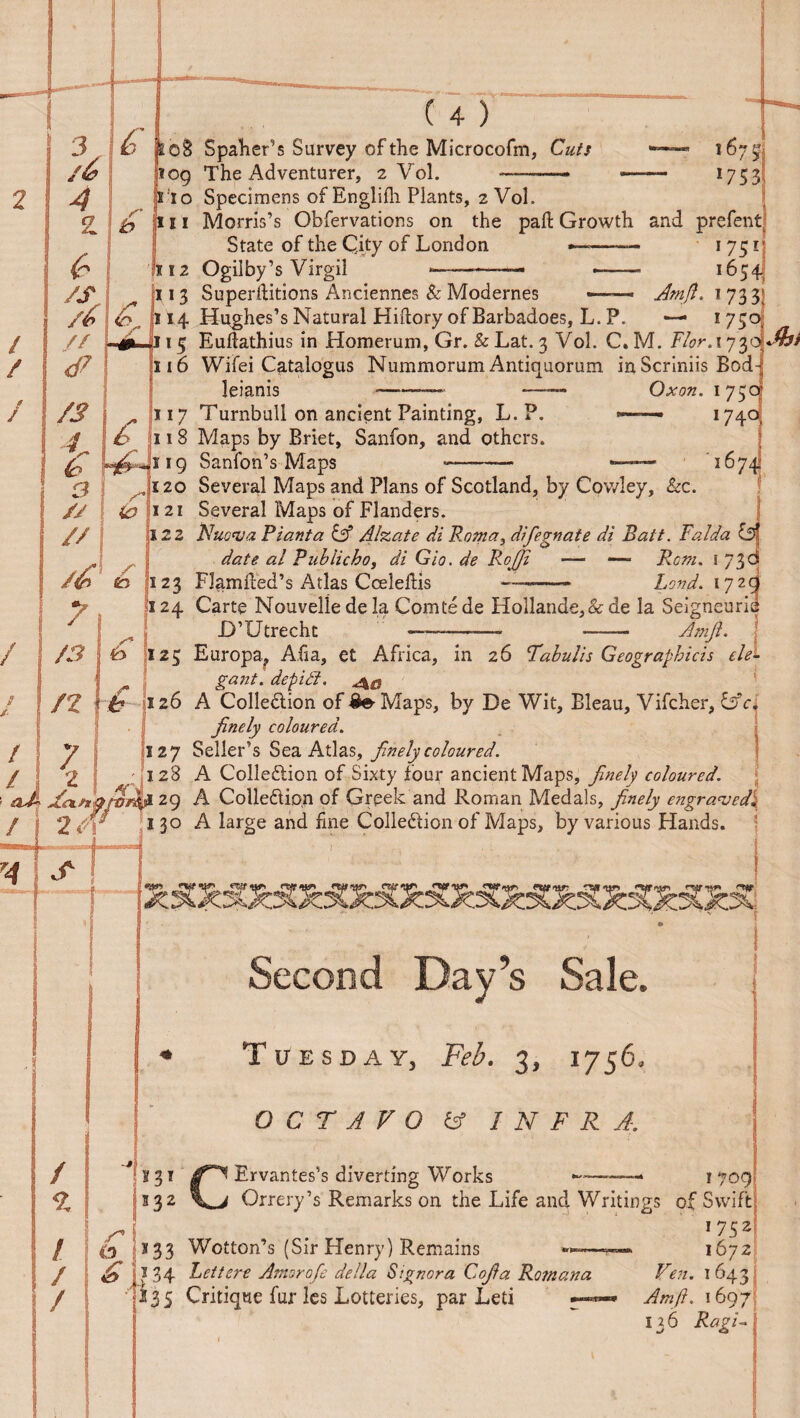 ( 4 )
3 6 108 Spaher's Survey of the Microcosm, Cuts —— 1675
16 109 The Adventurer, 2 Vol. —— —— 1753
2 4 110 Specimens of English Plants, 2 Vol.
2 6 111 Morris's Observations on the past Growth and present
State of the City of London —— 1751
6 112 Ogilby's Virgil —— —— 1654
15 113 Superstitions Anciennes & Modernes —— Amst. 1733
16 6 114 Hughes's Natural History of Barbadoes, L. P. — 1750
1 11 115 Eustathius in Homerum, Gr. & Lat. 3 Vol. C. M. Flor. 1730
1 116 Wisei Catalogus Nummorum Antiquorum in Scriniis Bod-
leianis —— —— Oxon. 1750
1 13 117 Turnbull on ancient Painting, L. P. —— 1740
4 6 118 Maps by Briet, Sanson, and others.
6 119 Sanson's Maps —— —— 1674
3 120 Several Maps and Plans of Scotland, by Cowley, &c.
11 6 121 Several Maps of Flanders.
11 122 Nuova Pianta & Alzate di Roma, disegnate di Batt. Falda &
date al Publicho, di Gio. de Rossi — — Rom. 173
16 6 123 Flamsted's Atlas Cœlestis —— Lond. 1729
7 124 Carte Nouvelle de la Comté de Hollande, & de la Seigneurie
D'Utrecht —— —— Amst.
1 13 6 125 Europa, Asia, et Africa, in 26 Tabulis Geographicis ele-
gant. depict.
1 12 6 126 A Collection of Maps, by De Wit, Bleau, Vischer, &c.
finely coloured.
1 7 127 Seller's Sea Atlas, finely coloured.
1 2 128 A Collection of Sixty four ancient Maps, finely coloured.
129 A Collection of Greek and Roman Medals, finely engraved.
1 2 130 A large and fine Collection of Maps, by various Hands.
74 5
Second Day's Sale.
Tuesday, Feb. 3, 1756.
OCTAVO & INFRA.
1 131 CErvantes's diverting Works —— 1709
2 132 Orrery's Remarks on the Life and Writings of Swift
1752
1 6 133 Wotton's (Sir Henry) Remains —— 1672
1 6 134 Lettere Amorose della Signora Costa Romana Ven. 1643
1 135 Critique sur les Lotteries, par Leti —— Amst. 1697
136 Ragi-